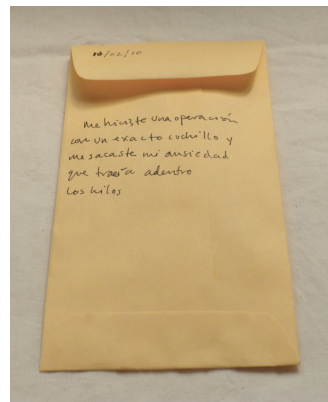 10/02/10
me hiciste una operación
con un exacto cuchillo y
me sacaste mi ansiedad
que traía adentro
Los hilos